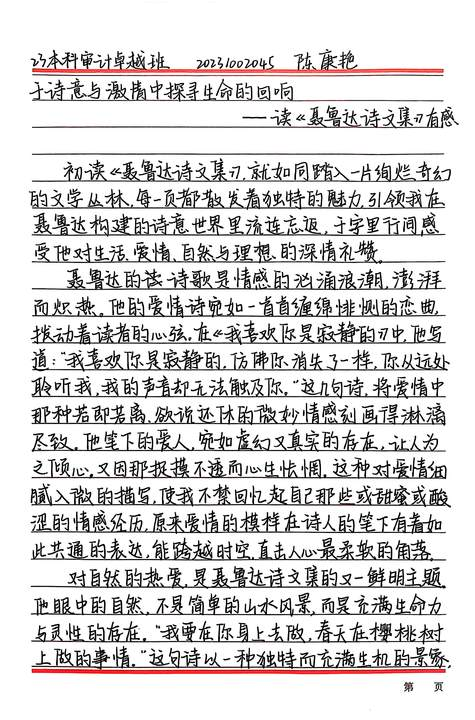 23本科审计卓越班 20231002045 陈康艳
于诗意与激情中探寻生命的回响
——读《聂鲁达诗文集》有感
初读《聂鲁达诗文集》,就如同踏入一片绚烂奇幻
的文学丛林,每一页都散发着独特的魅力,引领我在
聂鲁达构建的诗意世界里流连忘返,于字里行间感
受他对生活、爱情、自然与理想的深情礼赞。
聂鲁达的诗歌是情感的汹涌浪潮,澎湃
而炽热。他的爱情诗宛如一首首缠绵悱恻的恋曲,
拨动着读者的心弦。在《我喜欢你是寂静的》中,他写
道:“我喜欢你是寂静的,仿佛你消失了一样,你从远处
聆听我,我的声音却无法触及你。”这几句诗,将爱情中
那种若即若离、欲说还休的微妙情感刻画得淋漓
尽致。他笔下的爱人,宛如虚幻又真实的存在,让人为
之倾心,又因那捉摸不透而心生怅惘。这种对爱情细
腻入微的描写,使我不禁回忆起自己那些或甜蜜或酸
涩的情感经历,原来爱情的模样在诗人的笔下有着如
此共通的表达,能跨越时空,直击人心最柔软的角落。
对自然的热爱,是聂鲁达诗文集的又一鲜明主题。
他眼中的自然,不是简单的山水风景,而是充满生命力
与灵性的存在。“我要在你身上去做,春天在樱桃树
上做的事情。”这句诗以一种独特而充满生机的景象,
第 页